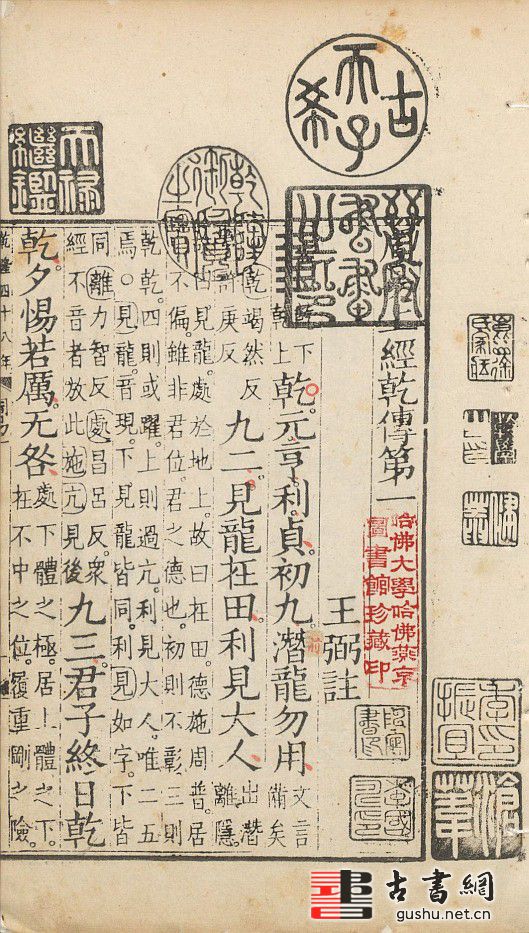 古希天子
天祿繼鑑
乾隆御覽之寶
經乾傳第一
哈佛大學哈佛燕京
圖書館珍藏印
王弼註
下
乾上
乾。元亨。利貞。初九。潛龍勿用
文言
備矣
乾竭然反
許庚反
九二。見龍在田。利見大人
出潛
離隱。
見龍。處於地上。故曰在田。德施周普。居
不偏。雖非君位。君之德也。初則不彰。三則
乾乾。四則或躍。上則過亢。利見大人。唯二五
焉。○見龍音現。下見龍皆同。利見如字。下皆
同離力智反處昌呂反。衆
經不音者放此施亢見後
九三。君子終日乾
乾。夕惕若厲。无咎
處下體之極。居上體之下。
在不中之位。履重剛之險。
乾隆四十八年
古書網
gushu.net.cn